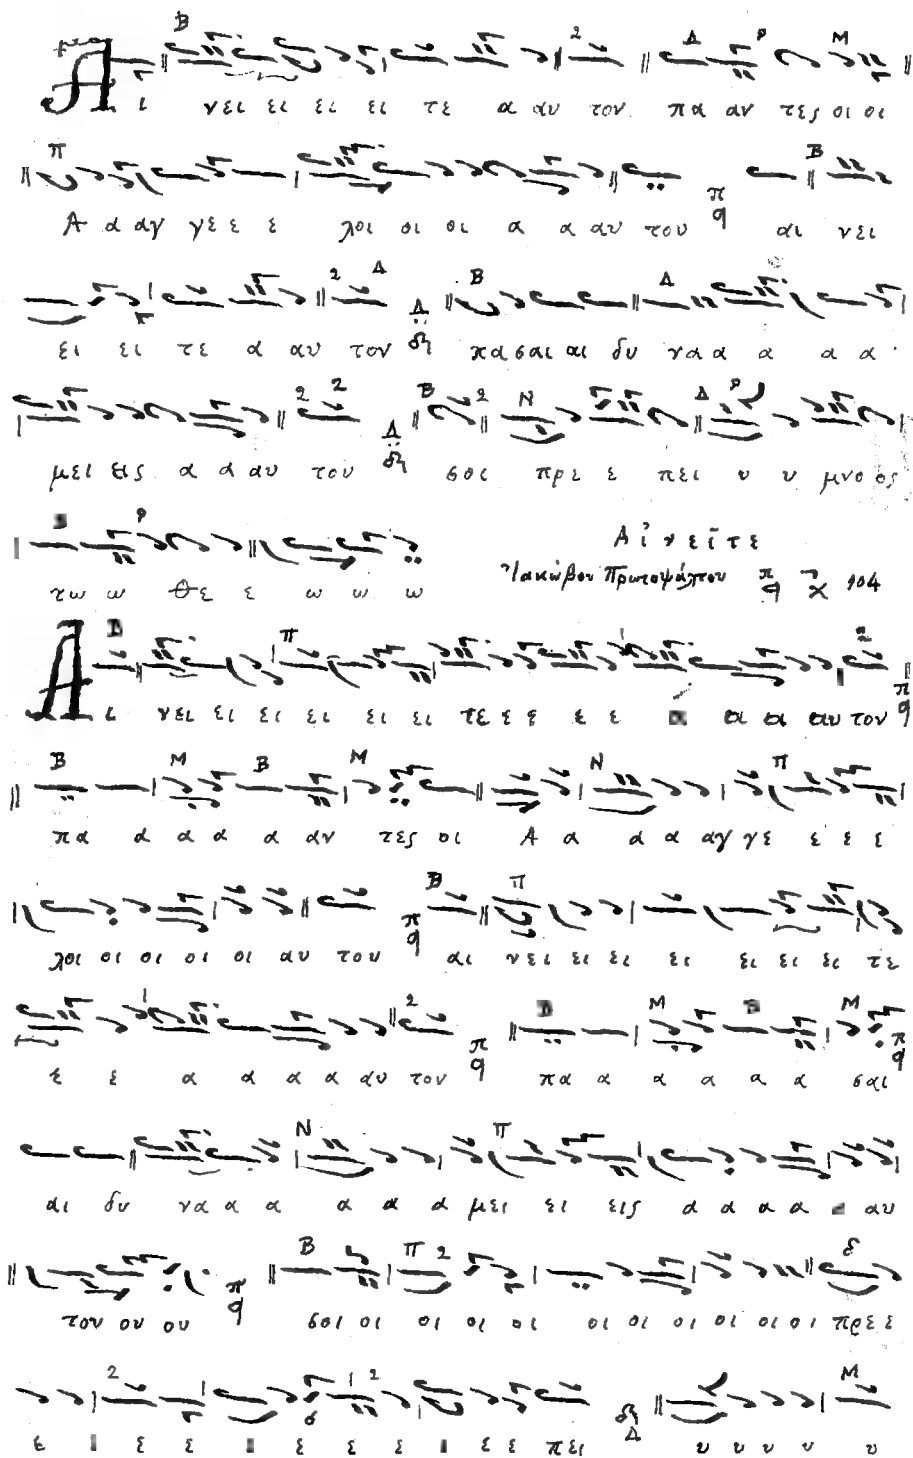 Α ι νει ει ει ει τε α αυ τον πα αν τες οι οι
Α α αγ γε ε ε λοι οι οι α α αυ του πα αι νει
ει ει τε α αυ τον Δ δη πα σαι αι δυ να α α α α
μει εις α α αυ του Δ δη σοι πρε ε πει υ υ μνο ος
τω ω Θε ε ω ω ω
Αἰνεῖτε
Ἰακώβου Πρωτοψάλτου πα 104
Α ι νει ει ει ει ει ει τε ε ε ε ε α α α αυ τον πα
πα α α α α αν τες οι Α α α α αγ γε ε ε ε
λοι οι οι οι οι αυ του πα αι νει ει ει ει ει ει ει τε
ε ε α α α α αυ τον πα πα α α α α α σαι πα
αι δυ να α α α α α μει ει εις α α α α αυ
του ου ου πα σοι οι οι οι οι οι οι οι οι οι οι πρε ε
ε ε ε ε ε ε ε ε πει δη Δ υ υ υ υ υ